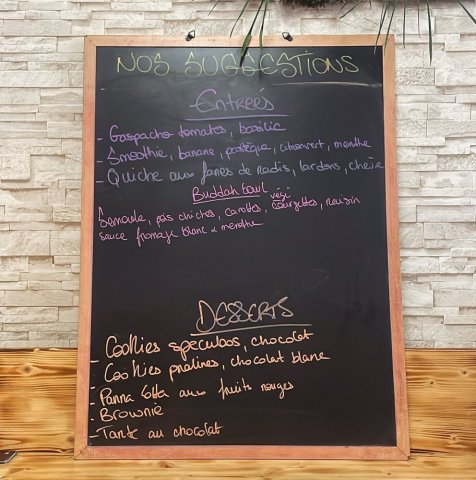 NOS SUGGESTIONS
Entrées
- Gaspacho tomates, basilic
- Smoothie, banane, pastèque, citronvert, menthe
- Quiche aux fanes de radis, lardons, chèvre
Buddah boul végé
Semoule, pois chiches, carottes, courgettes, raisin
sauce fromage blanc & menthe
DESSERTS
- Cookies speculos, chocolat
- Cookies pralines, chocolat blanc
- Panna Cotta aux fruits rouges
- Brownie
- Tarte au chocolat